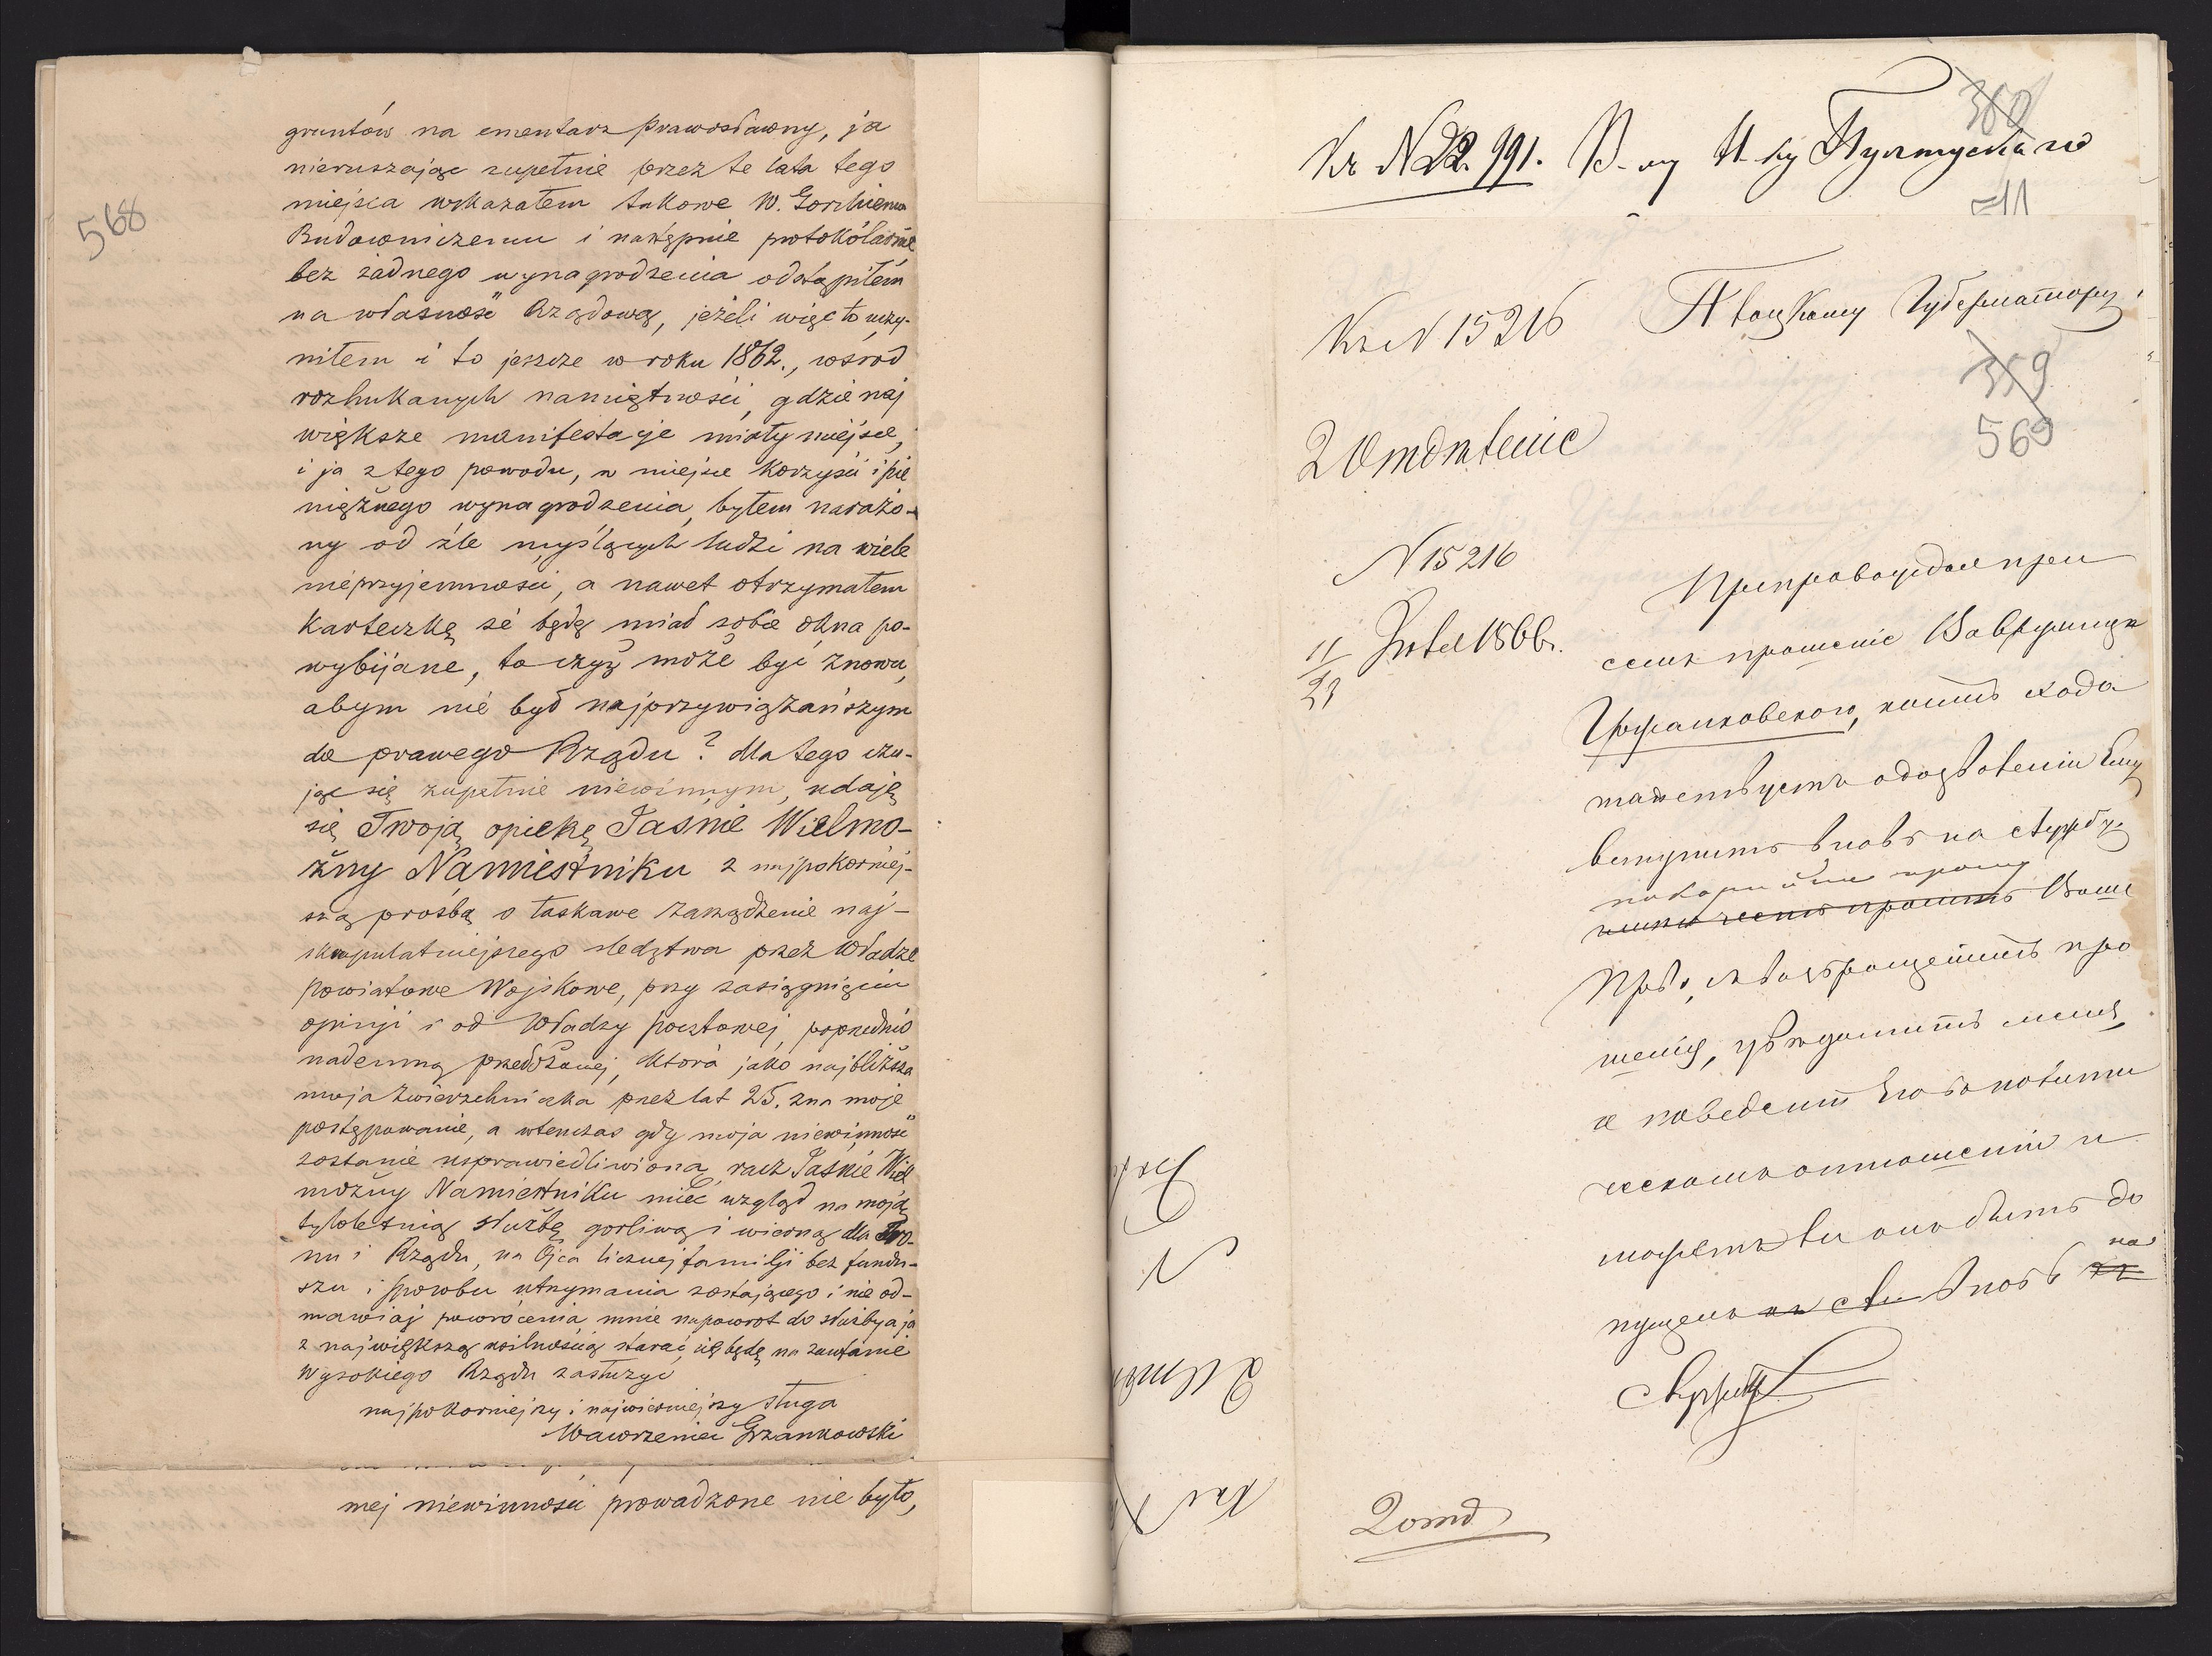 568
gruntów na ementarz Prawosławny, ja
nieruszając zupełnie przez te lata tego
miejsca wskazałem takowe W. Gorskiemu
Budowniczemu i następnie protokólarnie
bez żadnego wynagrodzenia odstąpiłem
na własność Rządową, jeżeli więc to uczy-
niłem i to jeszcze w roku 1862., wśród
rozhukanych namiętności, gdzie naj
większe manifestacje miały miejsce,
i ja z tego powodu, w miejsce korzyści i pie
niężnego wynagrodzenia, byłem narażo-
ny od źle myślących ludzi na wiele
nieprzyjemności, a nawet otrzymałem
karteczkę że będę miał sobie okna po-
wybijane, to czyż może być znowu,
abym nie był najprzywiązańszym
do prawego Rządu? dla tego czu-
jąc się zupełnie niewinnym, udaję
się Twoją opiekę Jaśnie Wielmo-
żny Namiestniku z najpokorniej-
szą prośbą o łaskawe zarządzenie naj-
skrupulatniejszego śledztwa przez Władze
Powiatowe Wojskowe, przy zasiągnięciu
opinji i od Władzy pocztowej, poprzednio
nademną przełożonej, która jako najbliższa
moja zwierzchniczka przez lat 25. zna moje
postępowanie, a wtenczas gdy moja niewinność
zostanie usprawiedliwioną, racz Jaśnie Wiel
możny Namiestniku mieć wzgląd na moją
tyloletnią służbę gorliwą i wierną dla Tro-
nu i Rządu, na Ojca licznej familji bez fundu-
szu i sposobu utrzymania zostającego i nie od-
mawiaj powrócenia mnie napowrot do służby a ja
z największą usilnością starać się będę na zaufanie
Wysokiego Rządu zasłużyć
najpokorniejszy i najwierniejszy sługa
Wawrzeniec Grzankowski
mej niewinności prowadzone nie było,
360
Къ N 22.991. В-му Н-ку Пултускаго
=11
Къ N 15216 Плоцкому Губернатору
359
569
2 Отдѣленіе
N 15216
11/23 Іюля 1866 г.
Препровождая при
семъ прошеніе Вавржинца
Гржанковскаго, коимъ хода
тайствуетъ о дозволеніи Ему
вступить вновь на службу,
покорнѣйше прошу
имѣю честь просить Ваше
Прев., съ возвращеніемъ про
шенія, увѣдомить меня,
о поведеніи Его въ полити
ческомъ отношеніи и
можетъ ли онъ быть до
пущенъ къ слу вновь на
къ
службу
2 отд